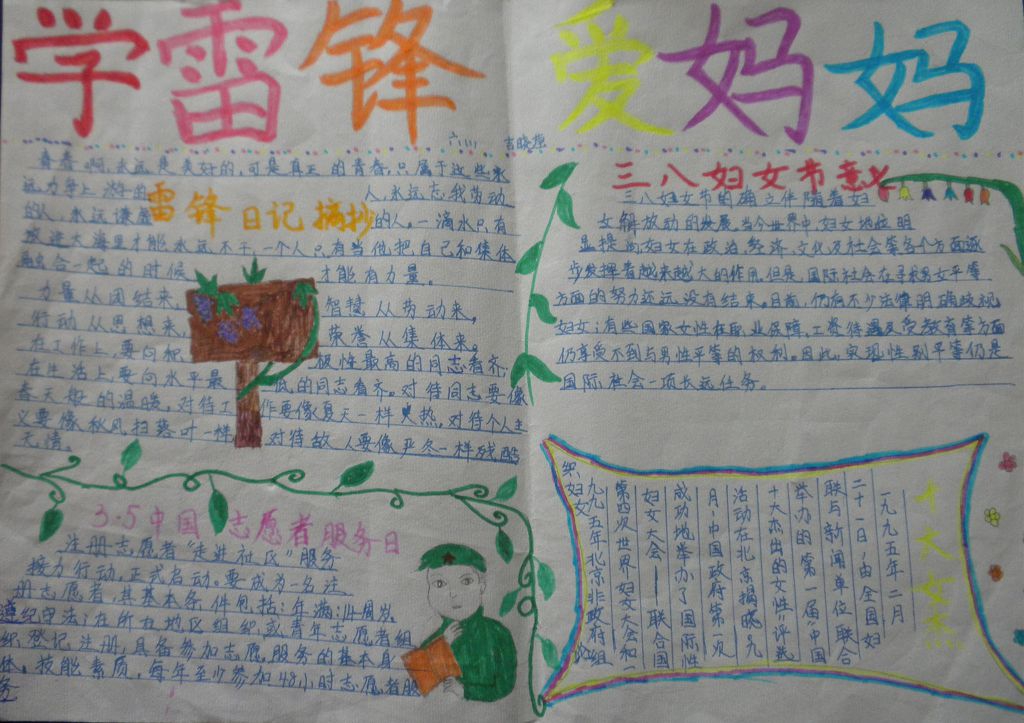 学雷锋 爱妈妈
青春啊,永远是美好的,可是真正的青春,只属于这些永
远力争上游的人,永远忘我劳动
的人,永远谦虚的人。一滴水只有
放进大海里才能永远不干,一个人只有当他把自己和集体
融合一起的时候才能有力量。
雷锋日记摘抄
力量从团结来,智慧从劳动来,
行动从思想来,荣誉从集体来。
在工作上,要向积极性最高的同志看齐,
在生活上,要向水平最低的同志看齐。对待同志要像
春天般的温暖,对待工作要像夏天一样火热,对待个人主
义要像秋风扫落叶一样,对待敌人要像严冬一样残酷
无情。
3·5中国志愿者服务日
注册志愿者“走进社区”服务
接力行动,正式启动。要成为一名注
册志愿者,其基本条件包括:年满14周岁,
遵纪守法;在所在地区组织或青年志愿者组
织登记注册,具备参加志愿服务的基本身
体、技能素质,每年至少参加48小时志愿者服
务
三八妇女节意义
三八妇女节的确立伴随着妇
女解放动的发展。当今世界中,妇女地位明
显提高,妇女在政治、经济、文化及社会等各个方面逐
步发挥着越来越大的作用。但是,国际社会在寻求男女平等
方面的努力还远没有结束。目前,仍有不少法律明确歧视
妇女;有些国家女性在职业保障、工资待遇及受教育等方面
仍享受不到与男性平等的权利。因此,实现性别平等仍是
国际社会一项长远任务。
十大女杰
一九九五年二月
二十一日,由全国妇
联与新闻单位联合
举办的第一届“中国
十大杰出的女性”评选
活动在北京揭晓。九
月,中国政府第一次
成功地举办了国际性
妇女大会——联合国
第四次世界妇女大会和一
九九五年北京非政府组
织妇女